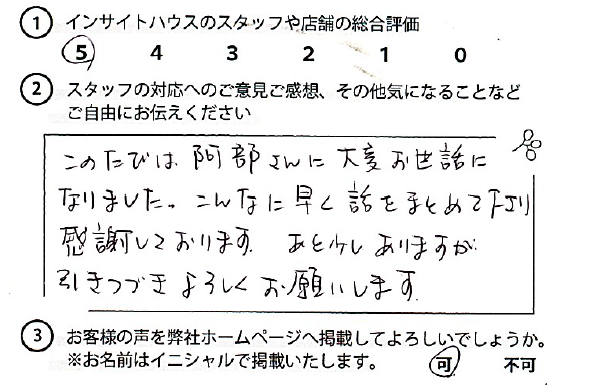 ① インサイトハウスのスタッフや店舗の総合評価
5 4 3 2 1 0
② スタッフの対応へのご意見ご感想、その他気になることなど
ご自由にお伝えください
このたびは 阿部さんに 大変お世話に
なりました。こんなに早く話をまとめて下さり
感謝しております。あと少しありますが
引きつづきよろしくお願いします。
③ お客様の声を弊社ホームページへ掲載してよろしいでしょうか。
※お名前はイニシャルで掲載いたします。 可 不可